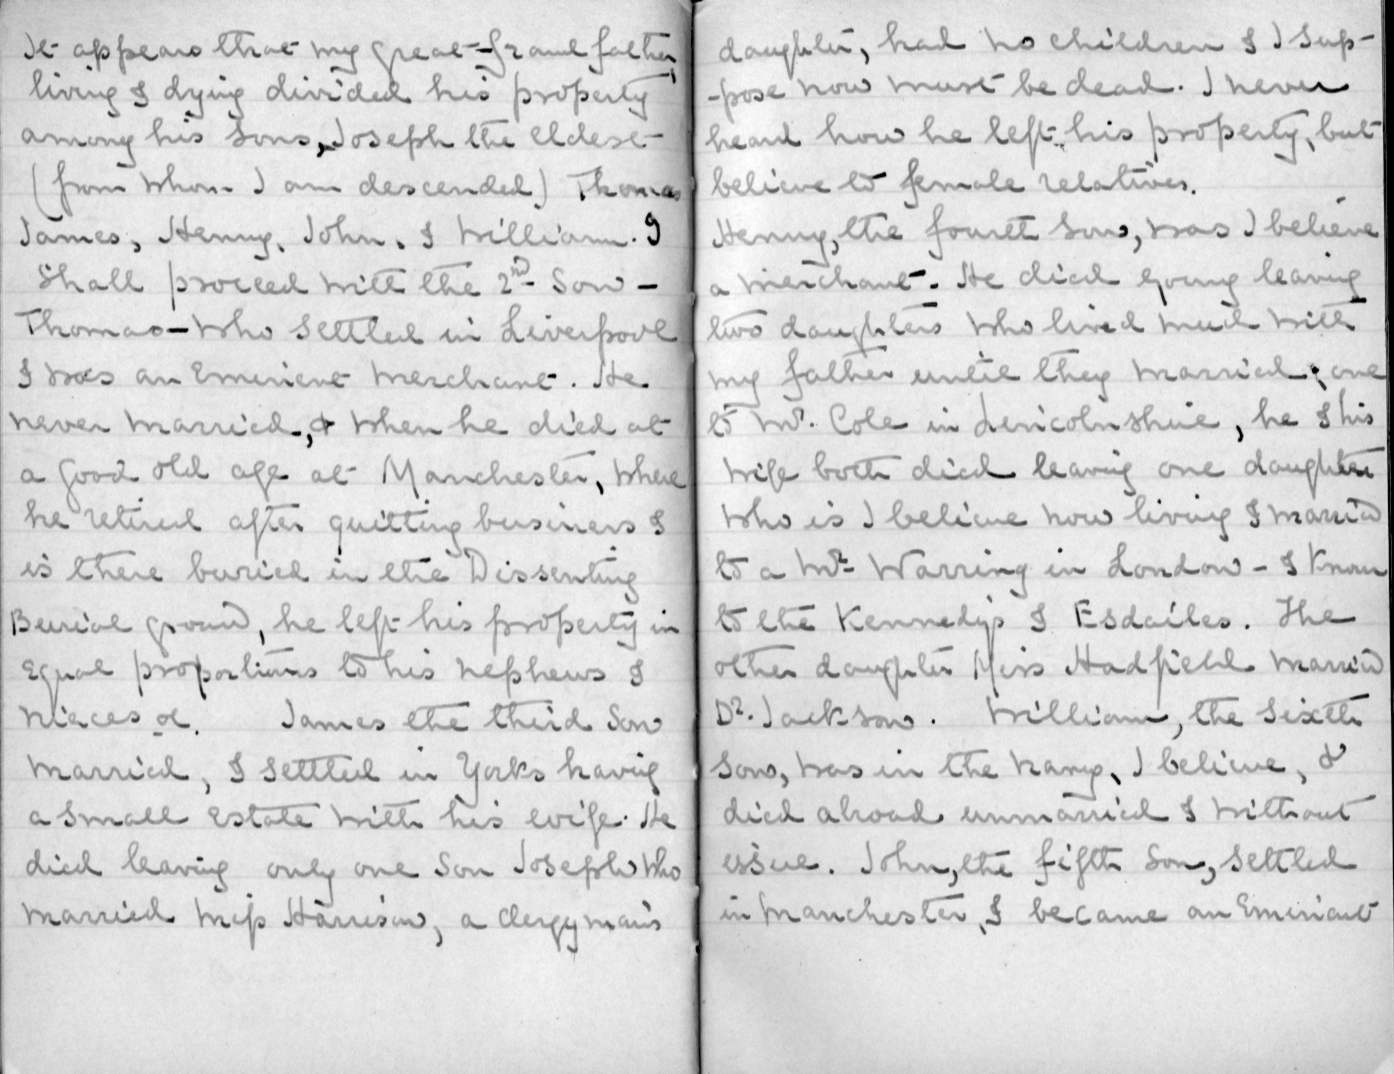 It appears that my great-grandfather,
living & dying divided his property
among his sons, Joseph the eldest
(from whom I am descended) Thomas
James, Henry, John, & William. I
shall proceed with the 2nd Son -
Thomas - who settled in Liverpool
& was an Eminent Merchant. He
never married, & when he died at
a good old age at Manchester, where
he retired after quitting business &
is there buried in the Dissenting
Burial ground, he left his property in
equal proportions to his nephews &
nieces &c. James the third Son
married, & settled in Yorks having
a small Estate with his wife. He
died leaving only one Son Joseph who
married Miss Harrison, a clergyman's
daughter, had no children & I sup-
-pose now must be dead. I never
heard how he left his property, but
believe to female relatives.
Henry, the fourth Son, was I believe
a merchant. He died young leaving
two daughters who lived much with
my father until they married; one
to Mr. Cole in Lincolnshire, he & his
wife both died leaving one daughter
who is I believe now living & married
to a Mr. Warring in London - & known
to the Kennedys & Esdailes. The
other daughter Miss Hadfield married
Dr. Jackson. William, the sixth
Son, was in the navy, I believe, &
died abroad unmarried & without
issue. John, the fifth Son, settled
in Manchester, & became an Eminent